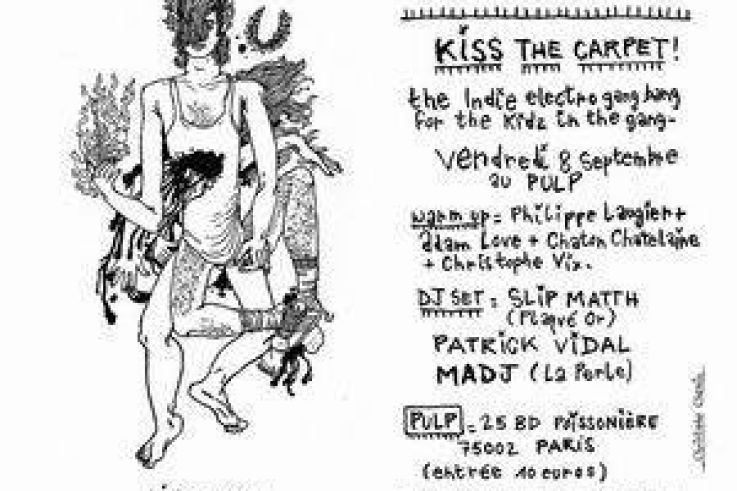 KiSS THE CARPET!
the Indie electro gang bang
for the kidz in the gang-
Vendredi 8 Septembre
au PULP
warm up= Philippe Laugier+
adam Love + Chaton Chatelaine
+ Christophe Vix.
DJ SET = SLiP MATTH
(Plaqué Or)
PATRICK ViDAL
MADJ (La Perle)
PULP = 25 BD POiSSONiÈRE
75002 PARiS
(entrée 10 euros)